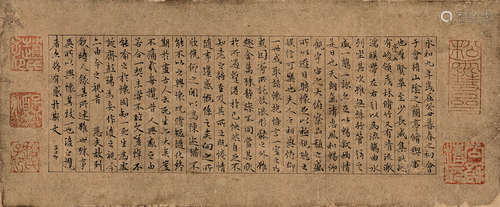 永和九年歲在癸丑暮春之初會
于會稽山陰之蘭亭脩稧事
也羣賢畢至少長咸集此地
有峻領茂林脩竹又有清流激
湍暎帶左右引以為流觴曲水
列坐其次雖無絲竹管弦之
盛一觴一詠亦足以暢敘幽情
是日也天朗氣清惠風和暢仰
觀宇宙之大俯察品類之盛
所以遊目騁懷足以極視聽之
娛信可樂也夫人之相與俯仰
一世或取諸懷抱悟言一室之內
或因寄所託放浪形骸之外雖
趣舍萬殊靜躁不同當其欣
於所遇暫得於己怏然自足不
知老之將至及其所之既倦情
隨事遷感慨係之矣向之所
欣俛仰之間以為陳迹猶不
能不以之興懷況脩短隨化終
期於盡古人云死生亦大矣豈
不痛哉每攬昔人興感之由
若合一契未嘗不臨文嗟悼不
能喻之於懷固知一死生為虛
誕齊彭殤為妄作後之視今
亦由今之視昔悲夫故列
敘時人錄其所述雖世殊事
異所以興懷其致一也後之攬
者亦將有感於斯文